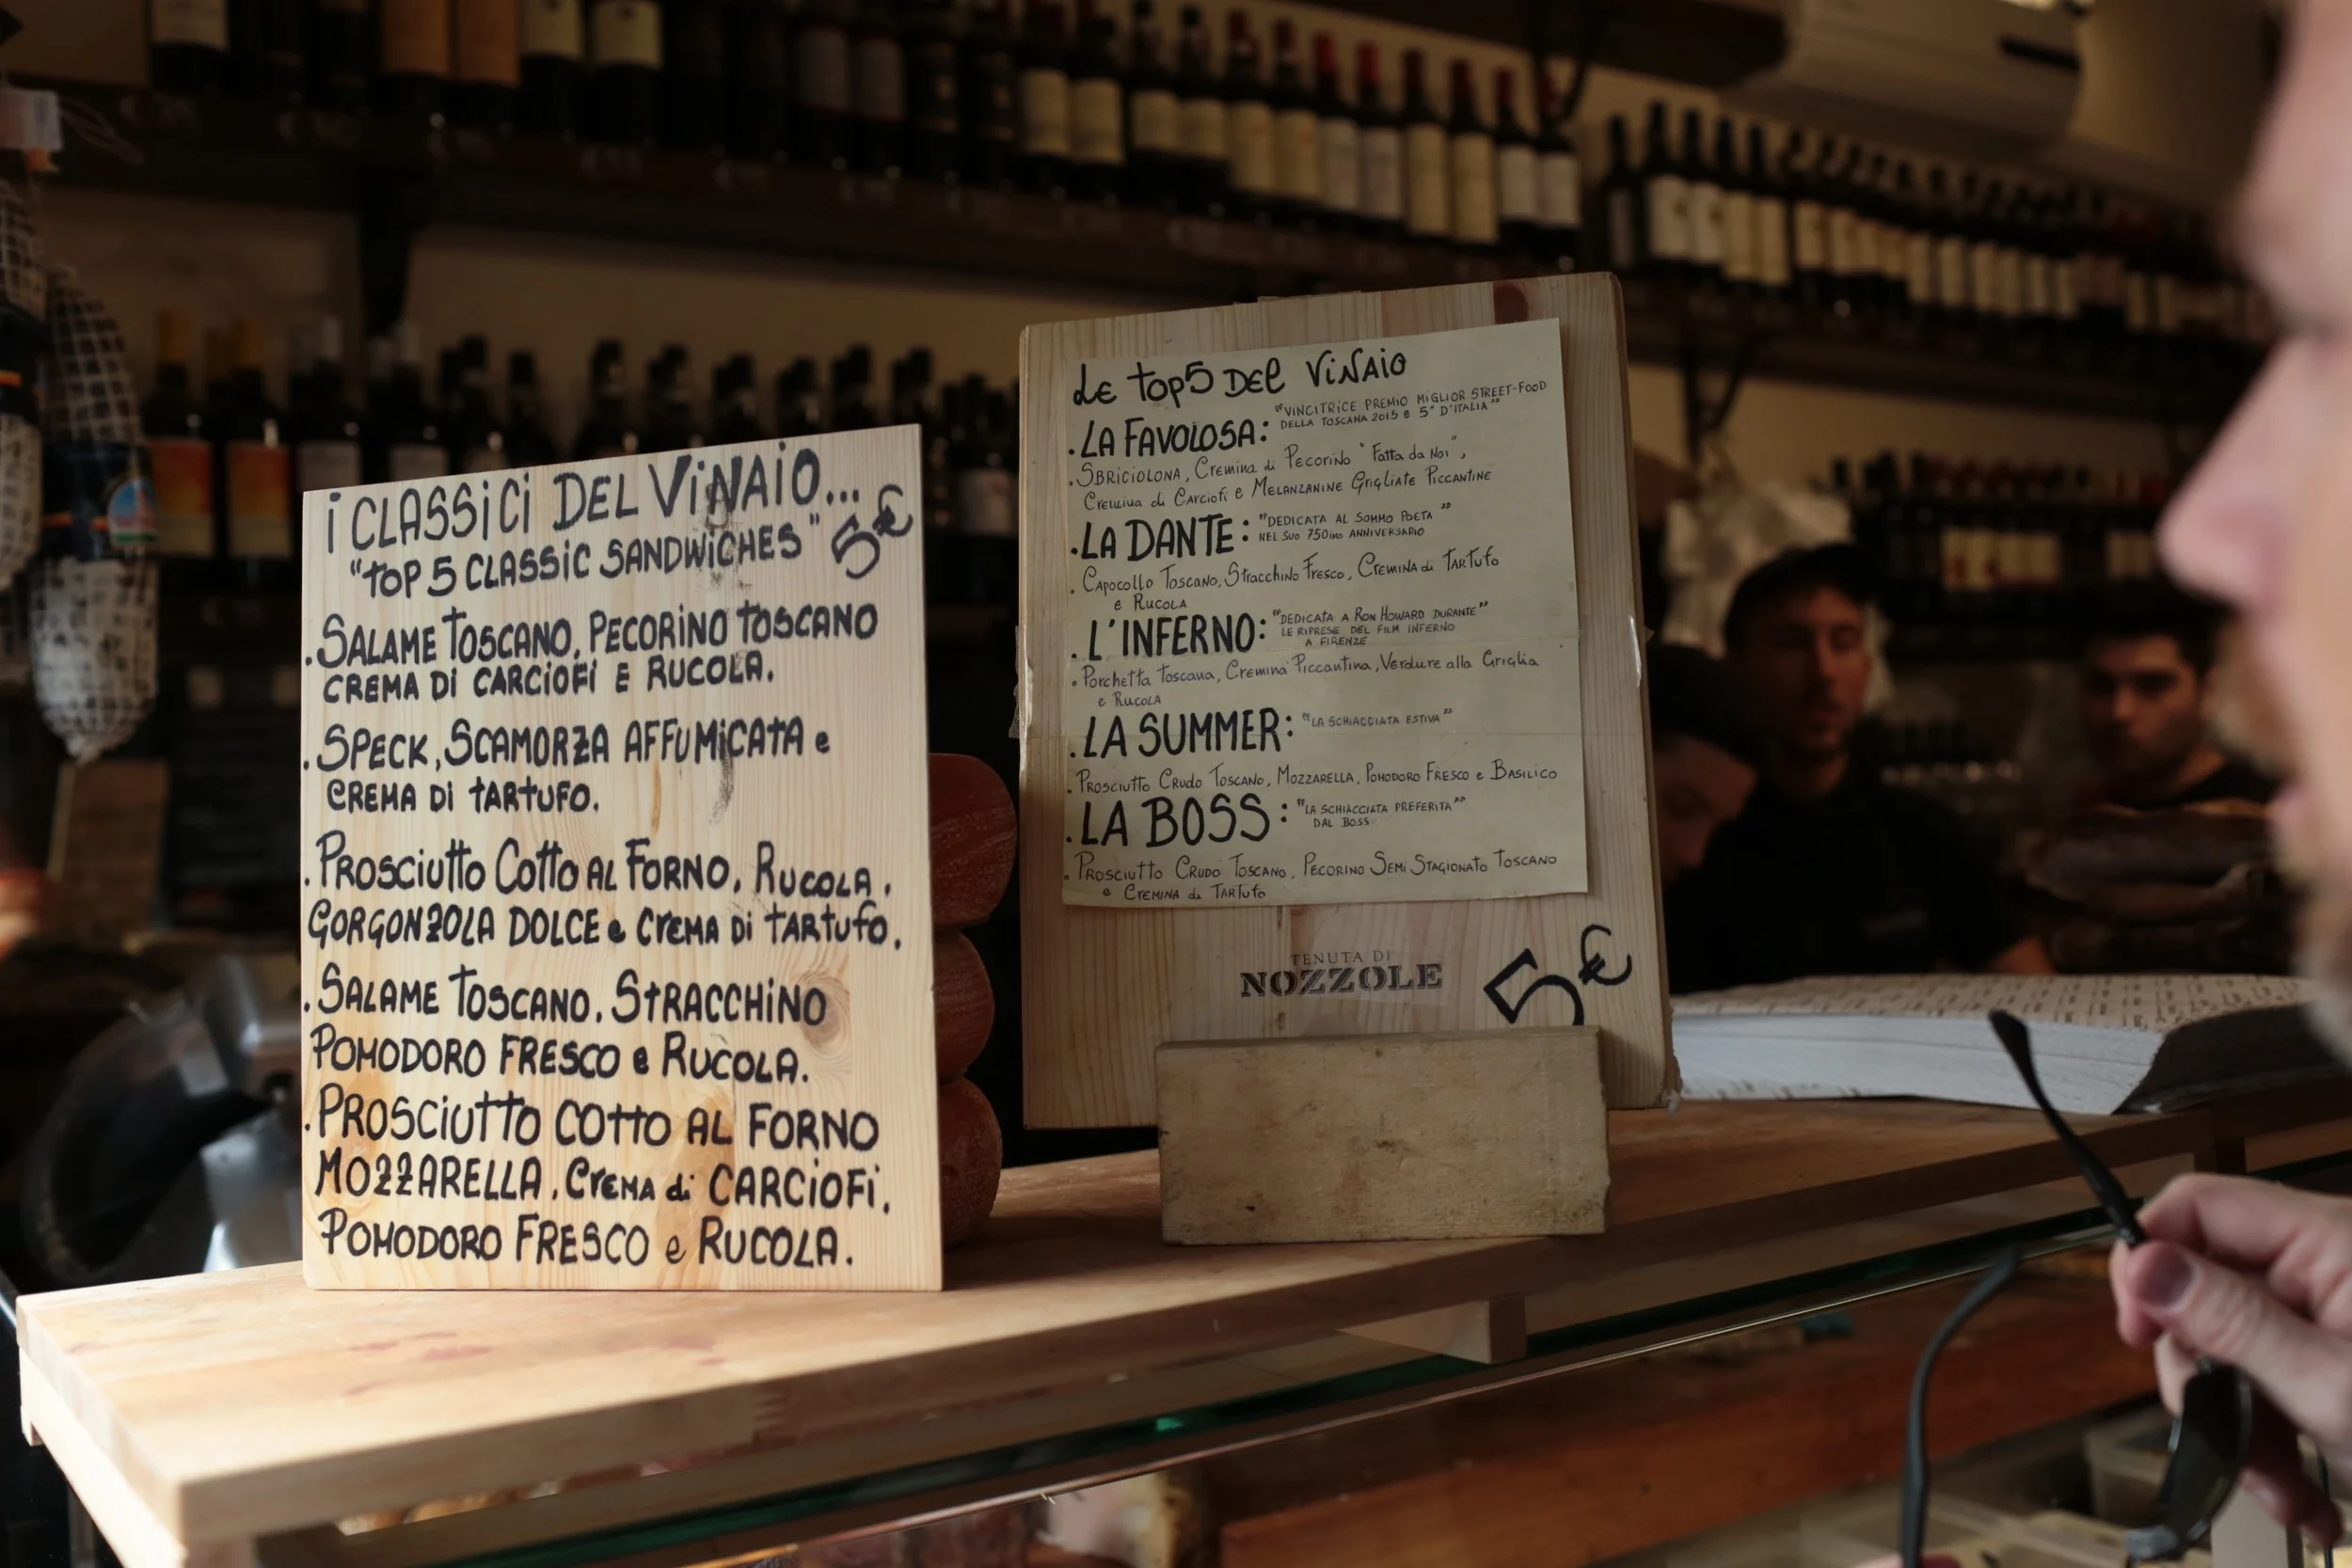 i CLASSiCi DEL ViNAiO...
"TOP 5 CLASSIC SANDWiCHES" 5€
.SALAME TOSCANO, PECORINO TOSCANO
CREMA Di CARCiOFi E RUCOLA.
.SPECK, SCAMORZA AFFUMiCATA e
CREMA Di TARTUFO.
.PROSCiUTTO COTTO AL FORNO, RUCOLA,
GORGONZOLA DOLCE e CREMA Di TARTUFO.
.SALAME TOSCANO, STRACCHiNO
POMODORO FRESCO e RUCOLA.
.PROSCiUTTO COTTO AL FORNO
MOZZARELLA, CREMA di CARCiOFi,
POMODORO FRESCO e RUCOLA.
LE TOP5 DEL ViNAiO
.LA FAVOLOSA: "VINCITRICE PREMIO MIGLIOR STREET-FOOD
DELLA TOSCANA 2015 e 5° D'ITALIA"
.SBRICIOLONA, Cremina di Pecorino "Fatta da Noi",
Cremina di Carciofi e MELANZANINE GRIGLIATE PICCANTINE
.LA DANTE: "DEDICATA AL SOMMO POETA"
NEL SUO 750imo ANNIVERSARIO
.CAPOCOLLO TOSCANO, STRACCHINO FRESCO, CREMINA di TARTUFO
e RUCOLA
.L'INFERNO: "DEDICATA A RON HOWARD DURANTE"
LE RIPRESE DEL FILM INFERNO
A FIRENZE
.Porchetta Toscana, Cremina Piccantina, Verdure alla Griglia
e RUCOLA
.LA SUMMER: "LA SCHIACCIATA ESTIVA"
.PROSCIUTTO CRUDO TOSCANO, MOZZARELLA, POMODORO FRESCO e BASILICO
.LA BOSS: "LA SCHIACCIATA PREFERITA"
DAL BOSS
.PROSCIUTTO CRUDO TOSCANO, PECORINO SEMI STAGIONATO TOSCANO
e CREMINA di TARTUFO
TENUTA DI
NOZZOLE
5€